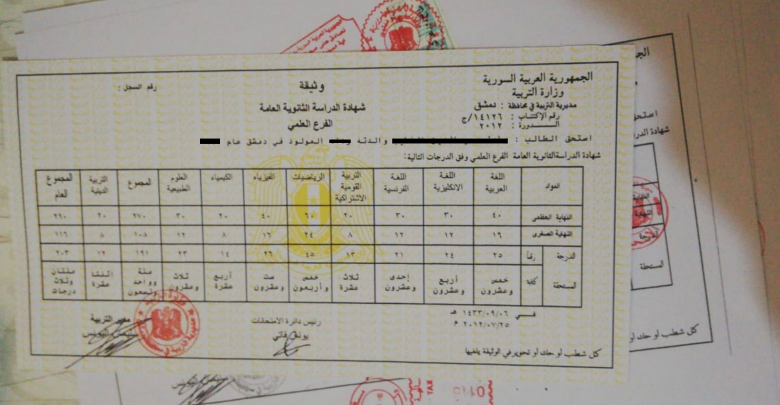 الجمهورية العربية السورية
وزارة التربية
مديرية التربية في محافظة: دمشق
رقم الاكتتاب : ١٤١٢٦/ج
الــدورة : ٢٠١٢
وثيقة
شهادة الدراسة الثانوية العامة
الفرع العلمي
رقم السجل:
استحق الطالب : والدته المولود في دمشق عام
شهادة الدراسة الثانوية العامة الفرع العلمي وفق الدرجات التالية:
المواد اللغة العربية اللغة الانكليزية اللغة الفرنسية التربية القومية الاشتراكية الرياضيات الفيزياء الكيمياء العلوم الطبيعية المجموع التربية الدينية المجموع العام
النهاية العظمى ٤٠ ٣٠ ٣٠ ٢٠ ٦٠ ٤٠ ٢٠ ٣٠ ٢٧٠ ٢٠ ٢٩٠
النهاية الصغرى ١٦ ١٢ ١٢ ٨ ٢٤ ١٦ ٨ ١٢ ١٠٨ ٨ ١١٦
الدرجة المستحقة رقماً ٢٥ ٢٤ ٢١ ١٣ ٤٥ ٢٦ ١٤ ٢٣ ١٩١ ١٢ ٢٠٣
كتابة خمس وعشرون أربع وعشرون إحدى وعشرون ثلاث عشرة خمس وأربعون ست وعشرون أربع عشرة ثلاث وعشرون مئة وواحد وتسعون اثنتا عشرة مئتان وثلاث درجات
فــي ١٤٣٣/٠٩/٠٦ هـ
٢٠١٢/٠٧/٢٥ م
رئيس دائرة الامتحانات
مدير التربية
كل شطب أو حك أو تحوير في الوثيقة يلغيها